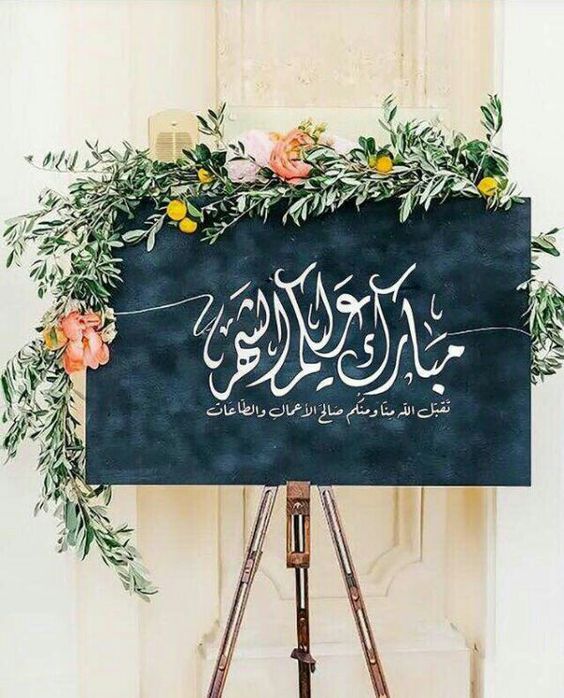 مبارك عليكم الشهر
تقبل الله منا ومنكم صالح الأعمال والطاعات